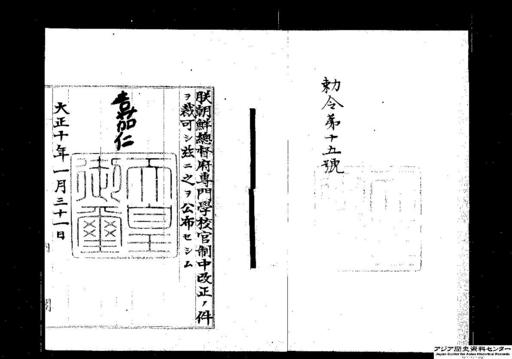 勅令第十五號
朕朝鮮總督府專門學校官制中改正ノ件
ヲ裁可シ玆ニ之ヲ公布セシム
嘉仁
天皇
御璽
大正十年一月三十一日
アジア歴史資料センター
Japan Center for Asian Historical Records